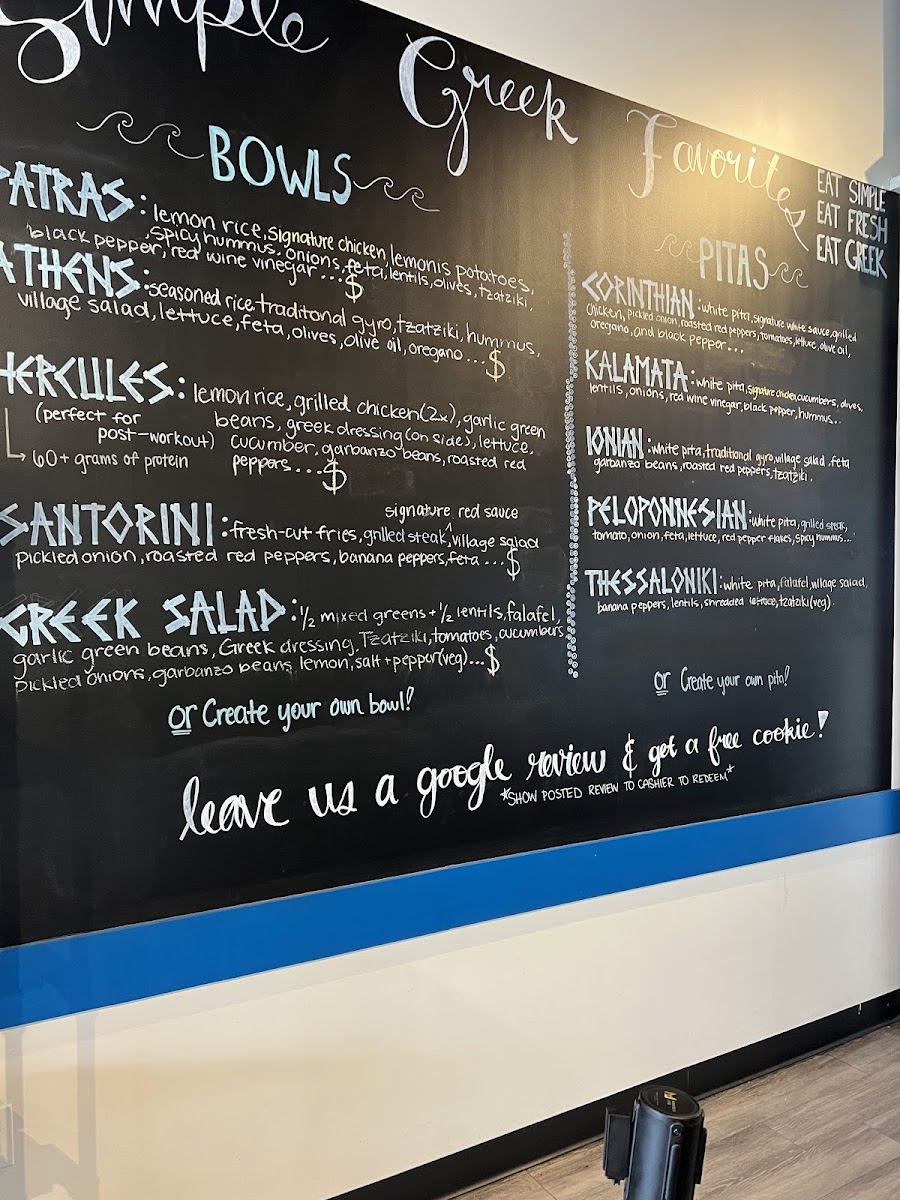 Simple Greek Favorites
EAT SIMPLE
EAT FRESH
EAT GREEK
BOWLS
PATRAS: lemon rice, signature chicken, lemonis potatoes,
spicy hummus, onions, feta, lentils, olives, tzatziki,
black pepper, red wine vinegar...$
ATHENS: seasoned rice, traditional gyro, tzatziki, hummus,
village salad, lettuce, feta, olives, olive oil, oregano...$
HERCULES: lemon rice, grilled chicken (2x), garlic green
(perfect for beans, greek dressing (on side), lettuce,
post-workout) cucumber, garbanzo beans, roasted red
60+ grams of protein peppers...$
signature red sauce
SANTORINI: fresh-cut fries, grilled steak, ^ village salad
pickled onion, roasted red peppers, banana peppers, feta ...$
GREEK SALAD: 1/2 mixed greens + 1/2 lentils, falafel,
garlic green beans, Greek dressing, Tzatziki, tomatoes, cucumbers
pickled onions, garbanzo beans, lemon, salt + pepper (veg)...$
or Create your own bowl!
PITAS
CORINTHIAN: white pita, signature white sauce, grilled
chicken, pickled onion, roasted red peppers, tomatoes, lettuce, olive oil,
oregano, and black pepper...
KALAMATA: white pita, signature chicken, cucumbers, olives,
lentils, onions, red wine vinegar, black pepper, hummus...
IONIAN: white pita, traditional gyro, village salad, feta
garbanzo beans, roasted red peppers, tzatziki.
PELOPONNESIAN: white pita, grilled steak,
tomato, onion, feta, lettuce, red pepper flakes, spicy hummus...
THESSALONIKI: white pita, falafel, village salad,
banana peppers, lentils, shredded lettuce, tzatziki (veg).
or Create your own pita!
leave us a google review & get a free cookie!
*SHOW POSTED REVIEW TO CASHIER TO REDEEM*